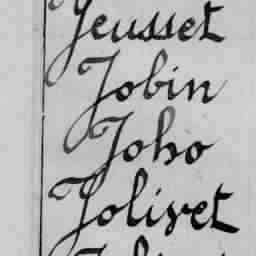 Jeusset
Jobin
Joho
Jolivet